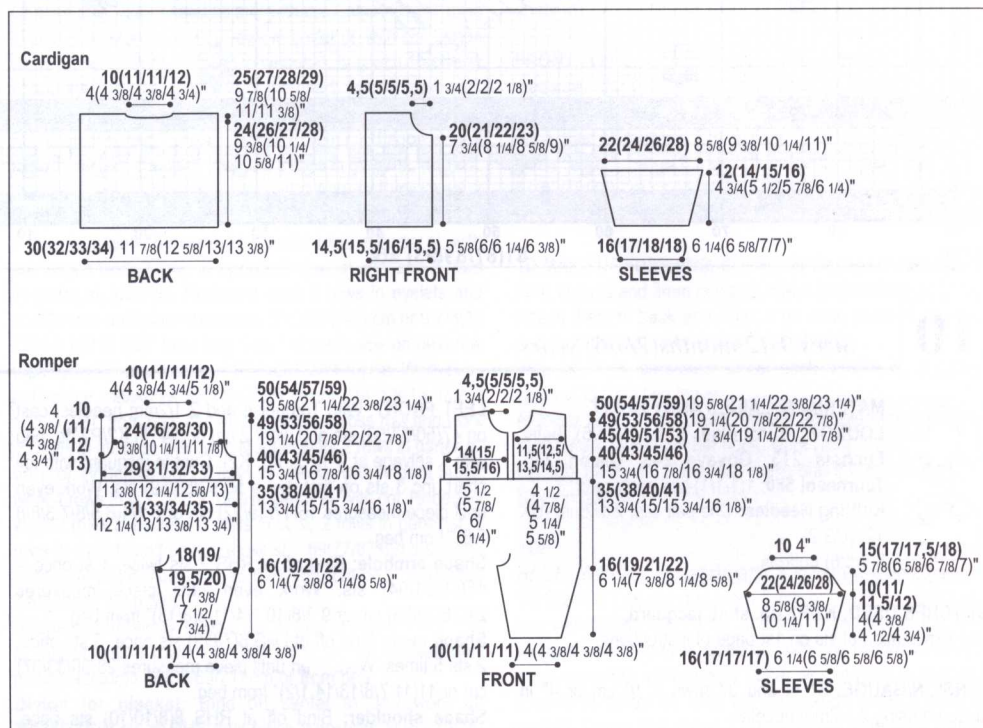 Cardigan
10(11/11/12)
4(4 3/8/4 3/8/4 3/4)"
25(27/28/29)
9 7/8(10 5/8/
11/11 3/8)"
24(26/27/28)
9 3/8(10 1/4/
10 5/8/11)"
30(32/33/34) 11 7/8(12 5/8/13/13 3/8)"
BACK
4,5(5/5/5,5) 1 3/4(2/2/2 1/8)"
20(21/22/23)
7 3/4(8 1/4/8 5/8/9)"
14,5(15,5/16/15,5) 5 5/8(6/6 1/4/6 3/8)"
RIGHT FRONT
22(24/26/28) 8 5/8(9 3/8/10 1/4/11)"
12(14/15/16)
4 3/4(5 1/2/5 7/8/6 1/4)"
16(17/18/18) 6 1/4(6 5/8/7/7)"
SLEEVES
Romper
10(11/11/12)
4(4 3/8/4 3/4/5 1/8)"
4
(4 3/8/
4 3/8/
4 3/4)"
10
(11/
12/
13)
24(26/28/30)
9 3/8(10 1/4/11/11 7/8)"
29(31/32/33)
11 3/8(12 1/4/12 5/8/13)"
31(33/34/35)
12 1/4(13/13 3/8/13 3/4)"
18(19/
19,5/20)
7(7 3/8/
7 1/2/
7 3/4)"
50(54/57/59)
19 5/8(21 1/4/22 3/8/23 1/4)"
49(53/56/58)
19 1/4(20 7/8/22/22 7/8)"
40(43/45/46)
15 3/4(16 7/8/16 3/4/18 1/8)"
35(38/40/41)
13 3/4(15/15 3/4/16 1/8)"
16(19/21/22)
6 1/4(7 3/8/8 1/4/8 5/8)"
10(11/11/11) 4(4 3/8/4 3/8/4 3/8)"
BACK
4,5(5/5/5,5)
1 3/4(2/2/2 1/8)"
14(15/
15,5/16)
5 1/2
(5 7/8/
6/
6 1/4)"
11,5(12,5/
13,5/14,5)
4 1/2
(4 7/8/
5 1/4/
5 5/8)"
50(54/57/59) 19 5/8(21 1/4/22 3/8/23 1/4)"
49(53/56/58) 19 1/4(20 7/8/22/22 7/8)"
45(49/51/53) 17 3/4(19 1/4/20/20 7/8)"
40(43/45/46)
15 3/4(16 7/8/16 3/4/18 1/8)"
35(38/40/41)
13 3/4(15/15 3/4/16 1/8)"
16(19/21/22)
6 1/4(7 3/8/8 1/4/8 5/8)"
10(11/11/11) 4(4 3/8/4 3/8/4 3/8)"
FRONT
10 4"
22(24/26/28)
8 5/8(9 3/8/
10 1/4/11)"
15(17/17,5/18)
5 7/8(6 5/8/6 7/8/7)"
10(11/
11,5/12)
4(4 3/8/
4 1/2/4 3/4)"
16(17/17/17) 6 1/4(6 5/8/6 5/8/6 5/8)"
SLEEVES